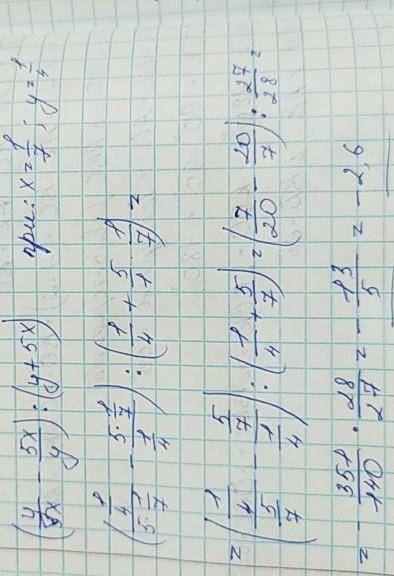 (y/5x - 5x/y) : (y + 5x) при: x = 1/7; y = 1/4
((1/4)/(5·1/7) - (5·1/7)/(1/4)) : (1/4 + 5/1 · 1/7) =
= ((1/4)/(5/7) - (5/7)/(1/4)) : (1/4 + 5/7) = (7/20 - 20/7) : 27/28 =
= - 351/140 · 28/27 = - 13/5 = - 2,6